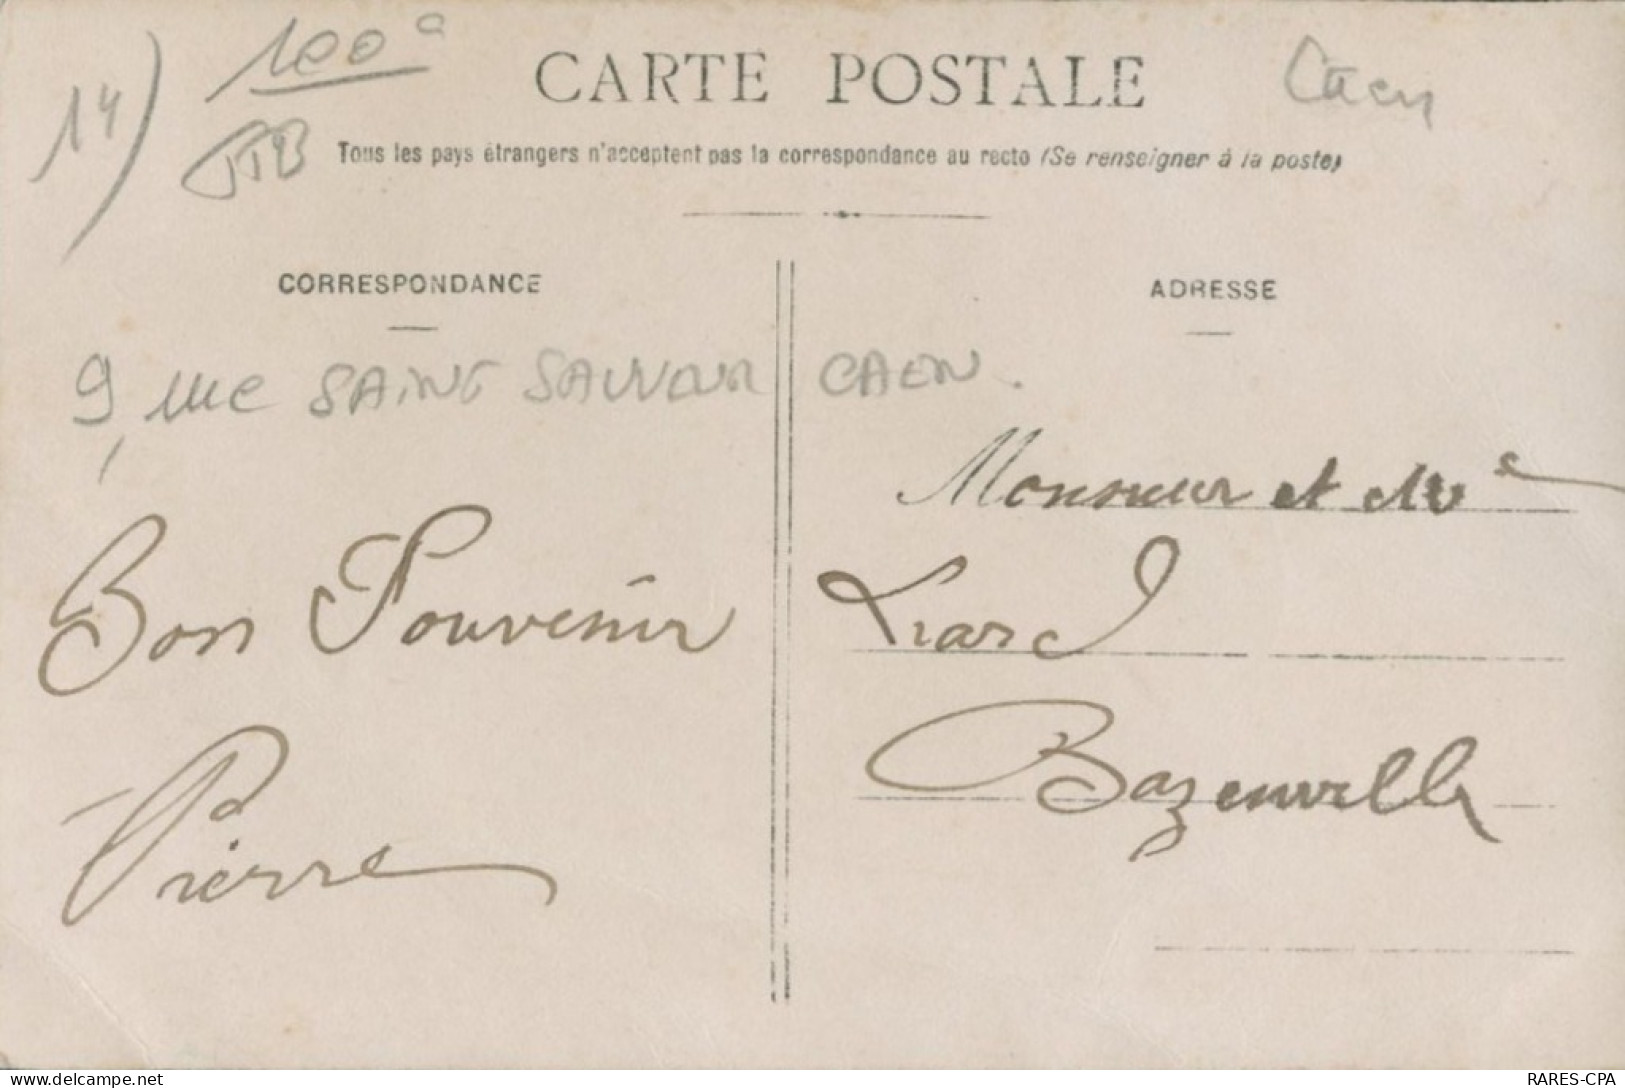 14)
100
TTB
CARTE POSTALE
Caen
Tous les pays étrangers n'acceptent pas la correspondance au recto (Se renseigner à la poste)
CORRESPONDANCE
ADRESSE
9, rue SAINT SAUVEUR CAEN.
Bon Souvenir
Pierre
Monsieur et Me
Liard
Bazenville
delcampe.net
RARES-CPA